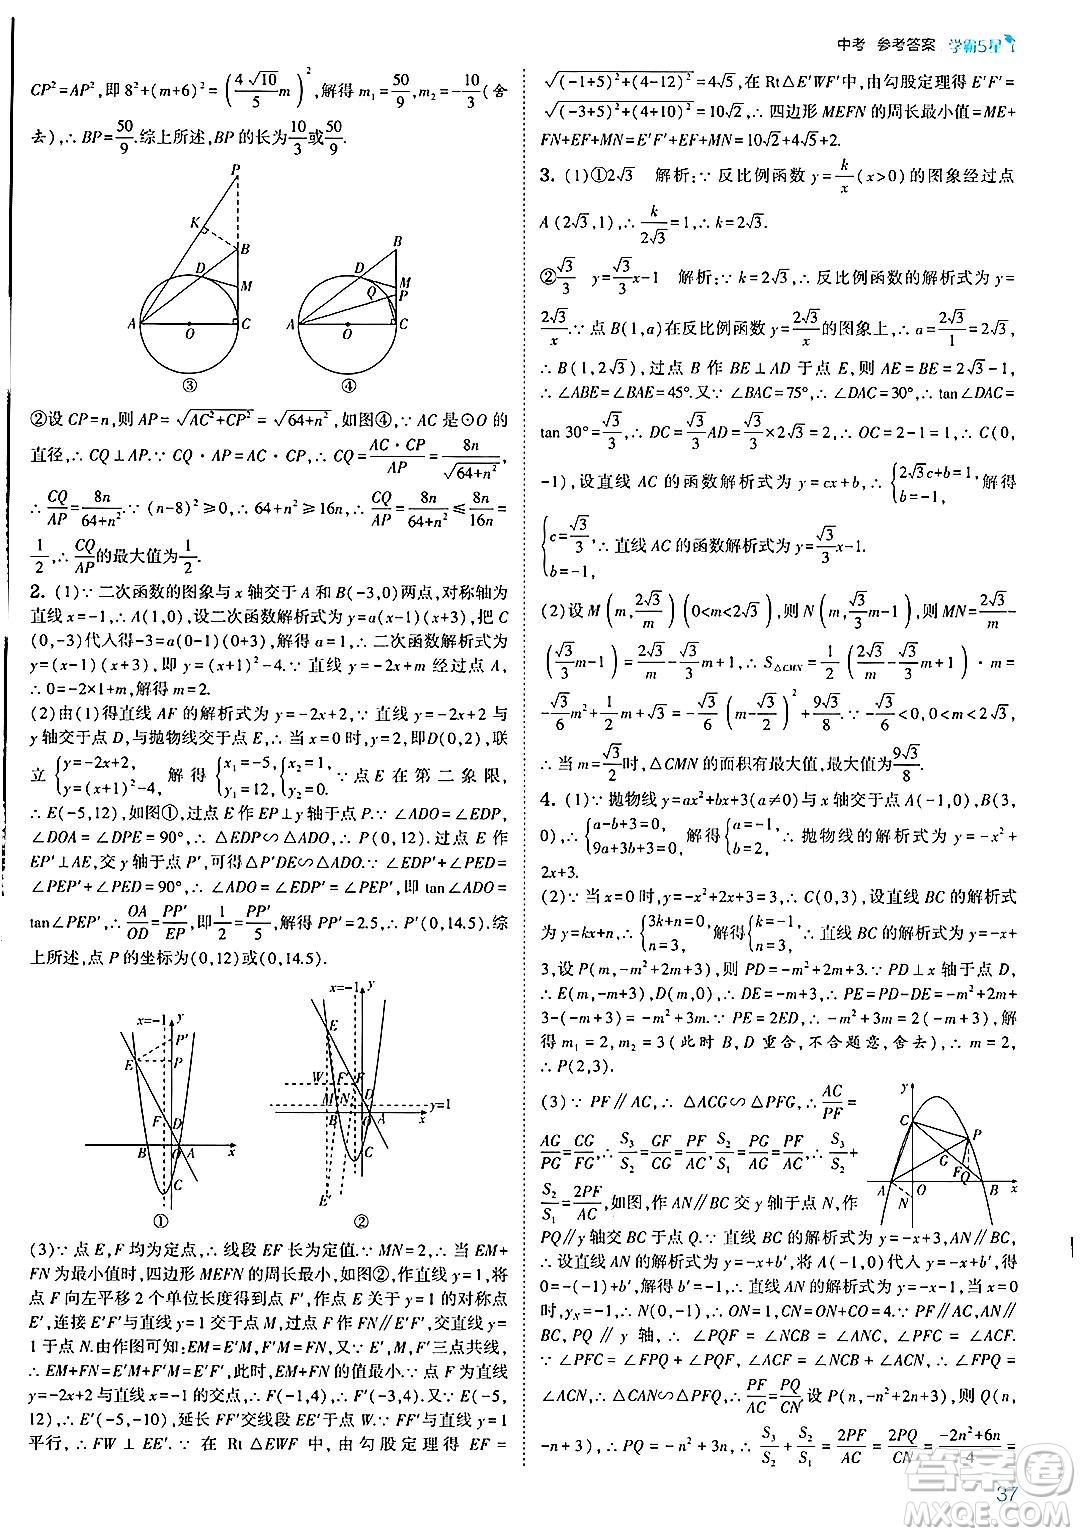 中考 参考答案 学霸5星
CP²=AP²,即 8²+(m+6)²=(4√10/5 m)²,解得 m₁=50/9,m₂=-10/3(舍
去),∴BP=50/9.综上所述,BP 的长为10/3或50/9.
P
K
B
D
M
A
O
C
③
B
D
M
Q
P
A
O
C
④
②设 CP=n,则 AP=√(AC²+CP²)=√(64+n²),如图④,∵AC 是⊙O 的
直径,∴CQ⊥AP.∵CQ·AP=AC·CP,∴CQ=AC·CP/AP=8n/√(64+n²),
∴CQ/AP=8n/(64+n²).∵(n-8)²≥0,∴64+n²≥16n,∴CQ/AP=8n/(64+n²)≤8n/16n=
1/2,∴CQ/AP的最大值为1/2.
2. (1)∵二次函数的图象与 x 轴交于 A 和 B(-3,0)两点,对称轴为
直线 x=-1,∴A(1,0),设二次函数解析式为 y=a(x-1)(x+3),把 C
(0,-3)代入得-3=a(0-1)(0+3),解得 a=1,∴二次函数解析式为
y=(x-1)(x+3),即 y=(x+1)²-4.∵直线 y=-2x+m 经过点 A,
∴0=-2×1+m,解得 m=2.
(2)由(1)得直线 AF 的解析式为 y=-2x+2,∵直线 y=-2x+2 与
y 轴交于点 D,与抛物线交于点 E,∴当 x=0 时,y=2,即 D(0,2),联
立{y=-2x+2, y=(x+1)²-4, 解得{x₁=-5, y₁=12, {x₂=1, y₂=0, ∵点 E 在第二象限,
∴E(-5,12),如图①,过点 E 作 EP⊥y 轴于点 P,∵∠ADO=∠EDP,
∠DOA=∠DPE=90°,∴△EDP∽△ADO,∴P(0,12).过点 E 作
EP'⊥AE,交 y 轴于点 P',可得△P'DE∽△ADO.∵∠EDP+∠PED=
∠PEP'+∠PED=90°,∴∠ADO=∠EDP=∠PEP',即 tan∠ADO=
tan∠PEP',∴OA/OD=PP'/EP,即1/2=PP'/5,解得 PP'=2.5,∴P(0,14.5).综
上所述,点 P 的坐标为(0,12)或(0,14.5).
x=-1
y
P'
E
P
F
D
B
O
A
x
C
①
x=-1
y
E
W
F'
F
M
N
D
y=1
B
O
A
x
C
E'
②
(3)∵点 E,F 均为定点,∴线段 EF 长为定值.∵MN=2,∴当 EM+
FN 为最小值时,四边形 MEFN 的周长最小,如图②,作直线 y=1,将
点 F 向左平移 2 个单位长度得到点 F',作点 E 关于 y=1 的对称点
E',连接 E'F'与直线 y=1 交于点 M,过点 F 作 FN∥E'F'交直线 y=
1 于点 N.由作图可知:EM=E'M,F'M=FN,E',M,F'三点共线,
∴EM+FN=E'M+F'M=E'F',此时,EM+FN 的值最小.∵点 F 为直线
y=-2x+2 与直线 x=-1 的交点,∴F(-1,4),∴F'(-3,4).又∵E(-5,
12),∴E'(-5,-10),延长 FF'交线段 EE'于点 W.∵FF'与直线 y=1
平行,∴FW⊥EE'.∵在 Rt△EWF 中,由勾股定理得 EF=
√((-1+5)²+(4-12)²)=4√5,在 Rt△E'WF'中,由勾股定理得 E'F'=
√((-3+5)²+(4+10)²)=10√2,∴四边形 MEFN 的周长最小值=ME+
FN+EF+MN=E'F'+EF+MN=10√2+4√5+2.
3. (1)①2√3 解析:∵反比例函数 y=k/x(x>0)的图象经过点
A(2√3,1),∴k/2√3=1,∴k=2√3.
②√3/3 y=√3/3x-1 解析:∵k=2√3,∴反比例函数的解析式为 y=
2√3/x.∵点 B(1,a)在反比例函数 y=2√3/x 的图象上,∴a=2√3/1=2√3,
∴B(1,2√3),过点 B 作 BE⊥AD 于点 E,则 AE=BE=2√3-1,
∴∠ABE=∠BAE=45°.又∵∠BAC=75°,∴∠DAC=30°,∴tan∠DAC=
tan 30°=√3/3,∴DC=√3/3AD=√3/3×2√3=2,∴OC=2-1=1,∴C(0,
-1),设直线 AC 的函数解析式为 y=cx+b,∴{2√3c+b=1, b=-1, 解得
{c=√3/3, b=-1, ∴直线 AC 的函数解析式为 y=√3/3x-1.
(2)设 M(m,2√3/m)(0<m<2√3),则 N(m,√3/3m-1),则 MN=2√3/m-
(√3/3m-1)=2√3/m-√3/3m+1,∴S△CMN=1/2(2√3/m-√3/3m+1)m=
-√3/6m²+1/2m+√3=-√3/6(m-√3/2)²+9√3/8.∵-√3/6<0,0<m<2√3,
∴当 m=√3/2时,△CMN 的面积有最大值,最大值为9√3/8.
4. (1)∵抛物线 y=ax²+bx+3(a≠0)与 x 轴交于点 A(-1,0),B(3,
0),∴{a-b+3=0, 9a+3b+3=0, 解得{a=-1, b=2, ∴抛物线的解析式为 y=-x²+
2x+3.
(2)∵当 x=0 时,y=-x²+2x+3=3,∴C(0,3),设直线 BC 的解析式
为 y=kx+n,∴{3k+n=0, n=3, 解得{k=-1, n=3, ∴直线 BC 的解析式为 y=-x+
3,设 P(m,-m²+2m+3),则 PD=-m²+2m+3.∵PD⊥x 轴于点 D,
∴E(m,-m+3),D(m,0),∴DE=-m+3,∴PE=PD-DE=-m²+2m+
3-(-m+3)=-m²+3m.∵PE=2ED,∴-m²+3m=2(-m+3),解
得 m₁=2,m₂=3(此时 B,D 重合,不合题意,舍去),∴m=2,
∴P(2,3).
(3)∵PF∥AC,∴△ACG∽△PFG,∴AC/PF=
AG/PG=CG/FG,∴S₃/S₂=GF/CG=PF/AC,S₂/S₁=PG/AG=PF/AC,∴S₃/S₂+
S₂/S₁=2PF/AC,如图,作 AN∥BC 交 y 轴于点 N,作
PQ∥y 轴交 BC 于点 Q.∵直线 BC 的解析式为 y=-x+3,AN∥BC,
∴设直线 AN 的解析式为 y=-x+b',将点 A(-1,0)代入,得
0=-(-1)+b',解得 b'=-1,∴直线 AN 的解析式为 y=-x-1,当 x=0
时,y_N=-1,∴N(0,-1),∴ON=1,∴CN=OC+ON=4.∵AN∥
BC,PQ∥y 轴,∴∠PQF=∠NCB=∠ANC,∠PFC=∠ACF.
∵∠PFC=∠PQF+∠FPQ,∠ACF=∠NCB+∠ACN,∴∠FPQ=
∠ACN,∴△CAN∽△PFQ,∴PF/AC=PQ/CN,设 P(n,-n²+2n+3),则 Q(n,
-n+3),∴PQ=-n²+3n,∴S₃/S₂+S₂/S₁=2PF/AC=2PQ/CN=(-2n²+6n)/4=
y
C
P
G
F
Q
A
O
B
x
N
答案圈
MXQE.COM
37